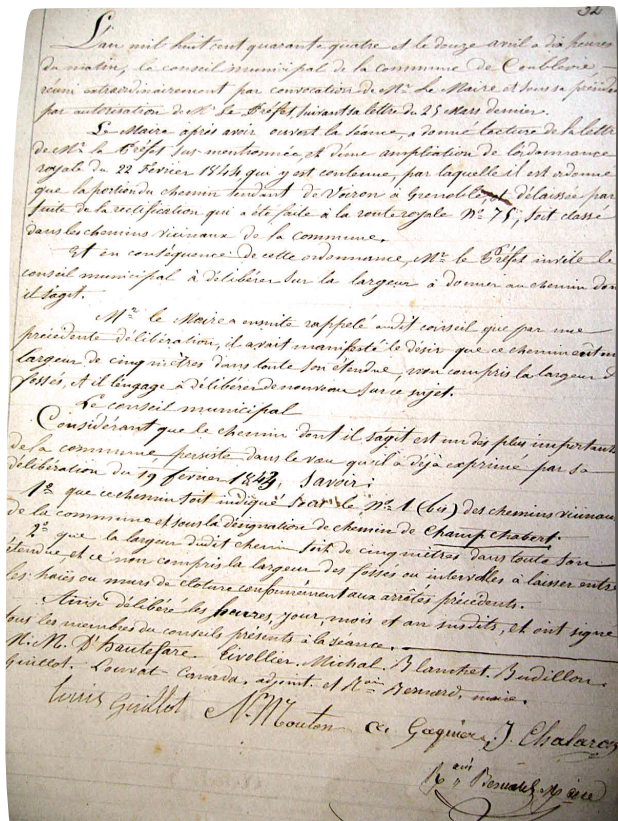 32
L'an mil huit cent quarante quatre et le douze avril à dix heures
du matin, le conseil municipal de la commune de Coublevie,
réuni extraordinairement par convocation de Mr. Le Maire et sous sa présiden
par autorisation de Mr. Le Préfet, suivant sa lettre du 25 Mars dernier.
Le Maire après avoir ouvert la séance, a donné lecture de la lettre
de Mr. le Préfet sus-mentionnée, et d'une ampliation de l'ordonnance
royale du 22 février 1844 qui y est contenue, par laquelle il est ordonné
que la portion du chemin tendant de Voiron à Grenoble, et délaissée par
suite de la rectification qui a été faite à la route royale No. 75, soit classé
dans les chemins vicinaux de la commune.
Et en conséquence de cette ordonnance, Mr. le Préfet invite le
conseil municipal à délibérer sur la largeur à donner au chemin don
il s'agit.
Mr. le Maire a ensuite rappelé audit conseil que par une
précédente délibération, il avait manifesté le désir que ce chemin eut un
largeur de cinq mètres dans toute son étendue, non compris la largeur d
fossés, et il l'engage à délibérer de nouveau sur ce sujet.
Le conseil municipal
Considérant que le chemin dont il s'agit est un des plus important
de la commune persiste dans le vœu qu'il a déjà exprimé par sa
délibération du 19 février 1843, Savoir:
1o. que ce chemin soit indiqué sous le No. 1 (bis) des chemins vicinau
de la commune et sous la désignation de chemin de Champ chabert.
2o. que la largeur dudit chemin soit de cinq mètres dans toute son
étendue, et ce non compris la largeur des fossés ou intervalles à laisser entre
les haies ou murs de cloture conformément aux arrêtés précédents.
Ainsi délibéré les heures, jour, mois et an susdits, et ont signé
tous les membres du conseils présents à la séance.
M.M. D'hautefare Tivollier, Michal, Blanchet, Budillon,
Guillot, Louvat Canada, adjoint. et Bernard, maire.
Louis Guillot N. Mouton Gagnier J. Chalaron
Bernard Maire